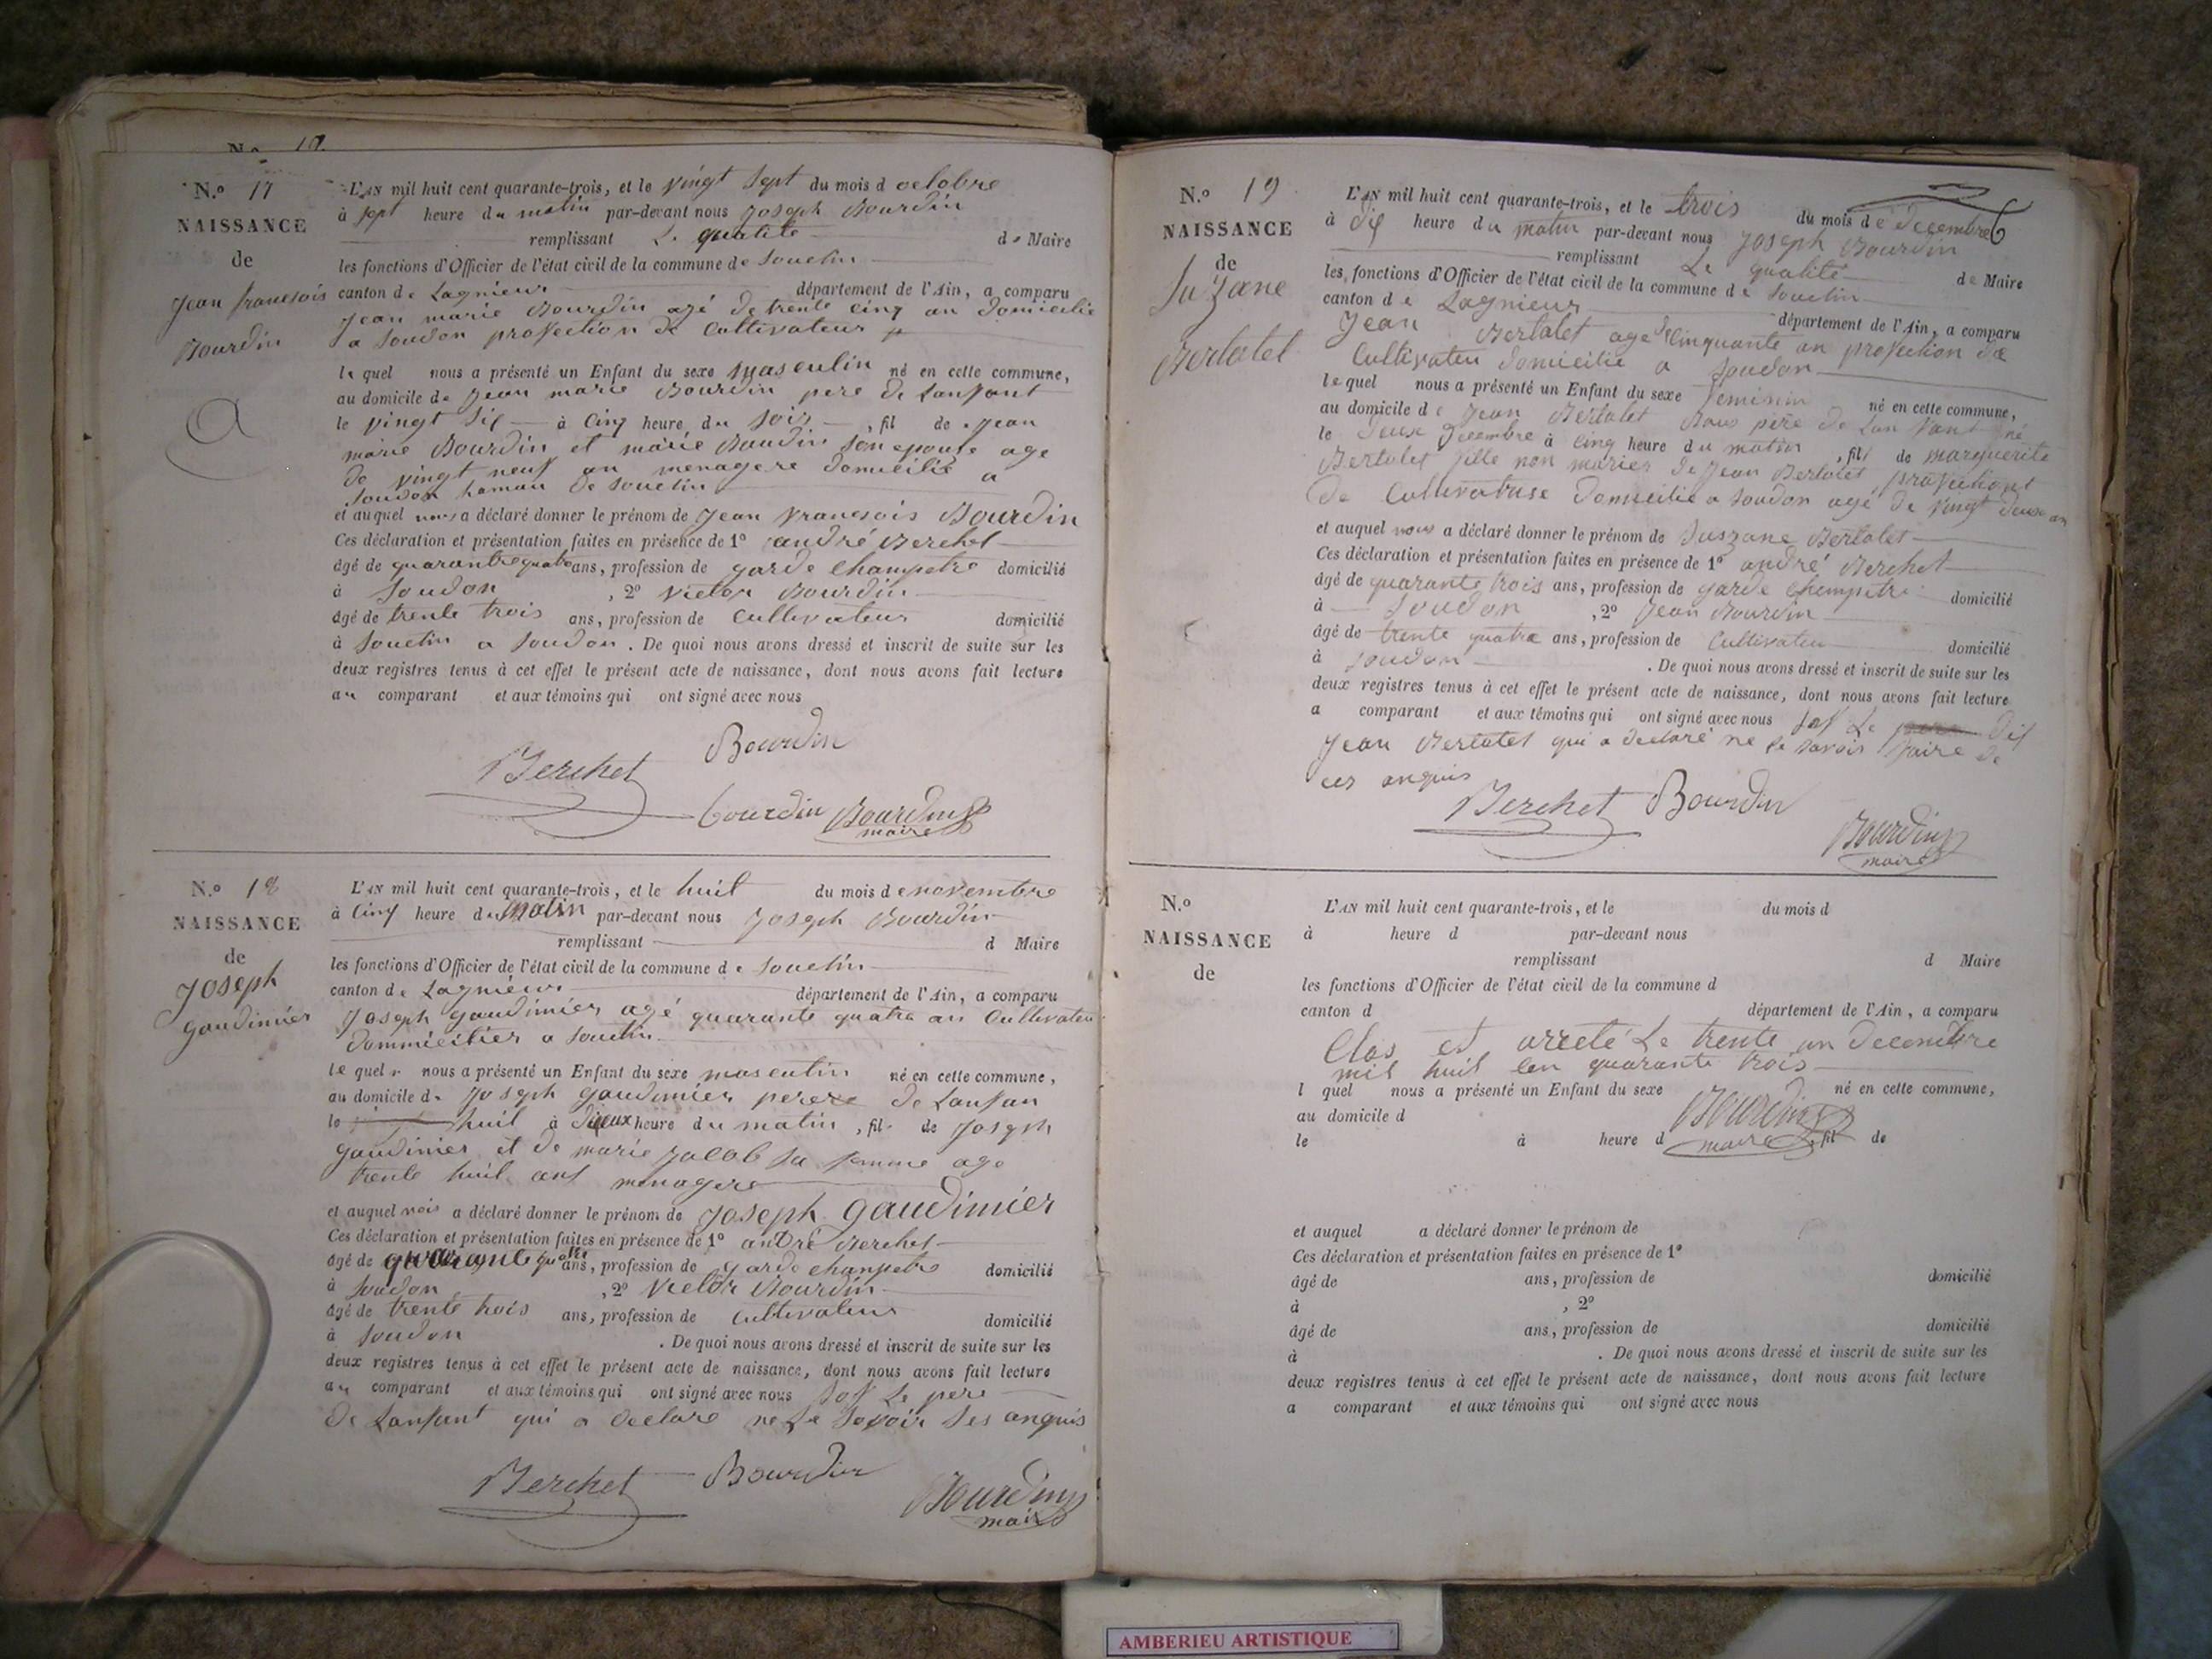 N.o 19
N.o 17
NAISSANCE
de
Jean francsois
Bourdin
L'AN mil huit cent quarante-trois, et le vingt sept du mois d octobre
à sept heure du matin par-devant nous Joseph Bourdin
remplissant Le qualité de Maire
les fonctions d'Officier de l'état civil de la commune de Souclin
canton de Lagnieur département de l'Ain, a comparu
Jean marie Bourdin agé de trente cinq an domicilie
a Soudon profection de Cultivateur
le quel nous a présenté un Enfant du sexe masculin né en cette commune,
au domicile de Jean marie Bourdin pere de Lanfant
le vingt sis à Cinq heure du soir, fil de Jean
marie Bourdin et marie Baudin son epouse age
de vingt neuf an menagere domicilié a
Soudon hamau de Souclin
et auquel nous a déclaré donner le prénom de Jean francsois Bourdin
Ces déclaration et présentation faites en présence de 1o andré Berchet
âgé de quarante quatre ans, profession de garde Champetre domicilié
à Soudon, 2o Victor Bourdin
âgé de trente trois ans, profession de Cultivateur domicilié
à Souclin a Soudon. De quoi nous avons dressé et inscrit de suite sur les
deux registres tenus à cet effet le présent acte de naissance, dont nous avons fait lecture
au comparant et aux témoins qui ont signé avec nous
Bourdin
Berchet
Bourdin Bourdin
maire
N.o 18
NAISSANCE
de
Joseph
gaudimier
L'AN mil huit cent quarante-trois, et le huit du mois de novembre
à Cinq heure du matin par-devant nous Joseph Bourdin
remplissant d Maire
les fonctions d'Officier de l'état civil de la commune de Souclin
canton de Lagnieur département de l'Ain, a comparu
Joseph gaudimier agé quarante quatre an Cultivateur
dommicilier a Souclin
le quel nous a présenté un Enfant du sexe masculin né en cette commune,
au domicile de Joseph gaudimier pere de Lanfan
le huit à heure du matin, fil de Joseph
gaudimier et de marie Jacob sa femme age
trente huit ans menagere
et auquel nous a déclaré donner le prénom de Joseph gaudimier
Ces déclaration et présentation faites en présence de 1o andré Berchet
âgé de quarante quatre ans, profession de garde champetre domicilié
à Soudon, 2o Victor Bourdin
âgé de trente trois ans, profession de Cultivateur domicilié
à Soudon. De quoi nous avons dressé et inscrit de suite sur les
deux registres tenus à cet effet le présent acte de naissance, dont nous avons fait lecture
au comparant et aux témoins qui ont signé avec nous sof Le pere
de Lanfant qui a declare ne Le Savoir Ses anquis
Berchet Bourdin
Bourdin
maire
N.o 19
NAISSANCE
de
Suzane
Bertolet
L'AN mil huit cent quarante-trois, et le trois du mois de decembre
à dis heure du matin par-devant nous Joseph Bourdin
remplissant Le qualité de Maire
les fonctions d'Officier de l'état civil de la commune de Souclin
canton de Lagnieur département de l'Ain, a comparu
Jean Bertolet age de Cinquante an profection de
Cultivateu domicilie a Soudon
le quel nous a présenté un Enfant du sexe feminin né en cette commune,
au domicile de Jean Bertolet pere de Lanfant né
le deux decembre à Cinq heure du matin, fil de marguerite
Bertolet fille non marier de Jean Bertolet profection
de Cultivatuse domicilie a Soudon agé de vingt deux an
et auquel nous a déclaré donner le prénom de Suszane Bertolet
Ces déclaration et présentation faites en présence de 1o andré Berchet
âgé de quarante trois ans, profession de garde champetre domicilié
à Soudon, 2o Jean Bourdin
âgé de trente quatre ans, profession de Cultivateu domicilié
à Soudon. De quoi nous avons dressé et inscrit de suite sur les
deux registres tenus à cet effet le présent acte de naissance, dont nous avons fait lecture
a comparant et aux témoins qui ont signé avec nous sof Le dit
Jean Bertolet qui a declaré ne Le Savoir faire de
ces anquis
Berchet Bourdin
Bourdin
maire
N.o
NAISSANCE
de
L'AN mil huit cent quarante-trois, et le du mois d
à heure d par-devant nous
remplissant d Maire
les fonctions d'Officier de l'état civil de la commune d
canton d département de l'Ain, a comparu
Clos et arreté Le trente un decembre
mil huit cen quarante trois
l quel nous a présenté un Enfant du sexe né en cette commune,
au domicile d Bourdin
le à heure d maire, fil de
et auquel a déclaré donner le prénom de
Ces déclaration et présentation faites en présence de 1o
âgé de ans, profession de domicilié
à , 2o
âgé de ans, profession de domicilié
à . De quoi nous avons dressé et inscrit de suite sur les
deux registres tenus à cet effet le présent acte de naissance, dont nous avons fait lecture
a comparant et aux témoins qui ont signé avec nous
AMBERIEU ARTISTIQUE